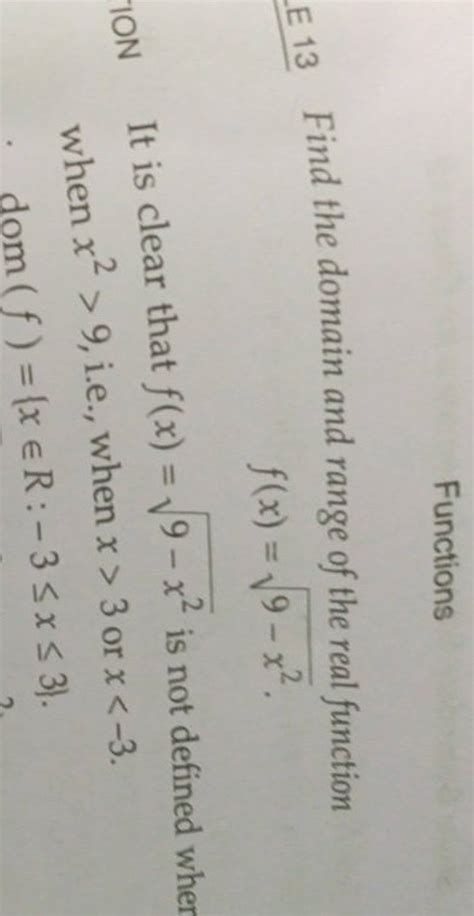 Functions
E 13 Find the domain and range of the real function
f(x) = √9 – x².
ION It is clear that f(x) = √9 – x² is not defined when
when x² > 9, i.e., when x > 3 or x < –3.
dom (f) = {x ∈ R : – 3 ≤ x ≤ 3}.